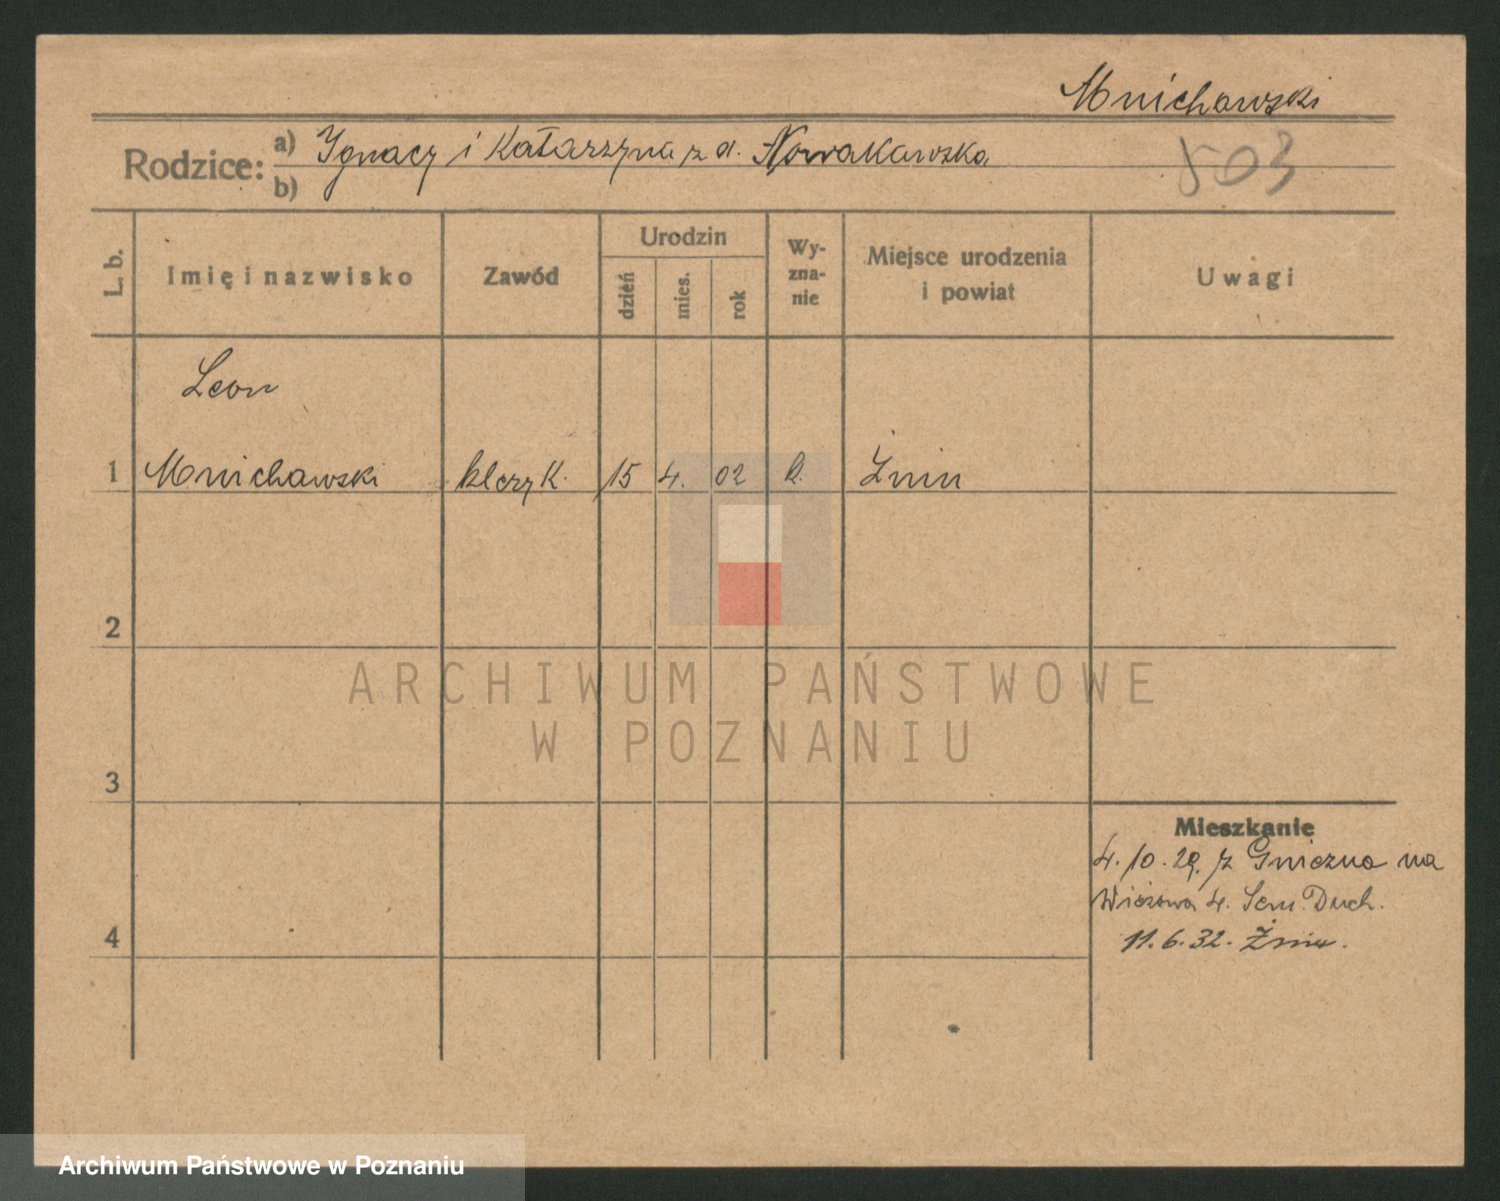 Mnichowski
503
Rodzice: a) Ignacy i Katarzyna z d. Nowakowska
b)
L. b.
Imię i nazwisko
Zawód
Urodzin
dzień
mies.
rok
Wy-
zna-
nie
Miejsce urodzenia
i powiat
Uwagi
Leon
1 Mnichowski kleryk. 15 4. 02 k. Żnin
2
3
4
Mieszkanie
4.10.29. z Gniezna na
Wieżowa 4. Sem. Duch.
11.6.32. Żnin.
ARCHIWUM PAŃSTWOWE
W POZNANIU
Archiwum Państwowe w Poznaniu